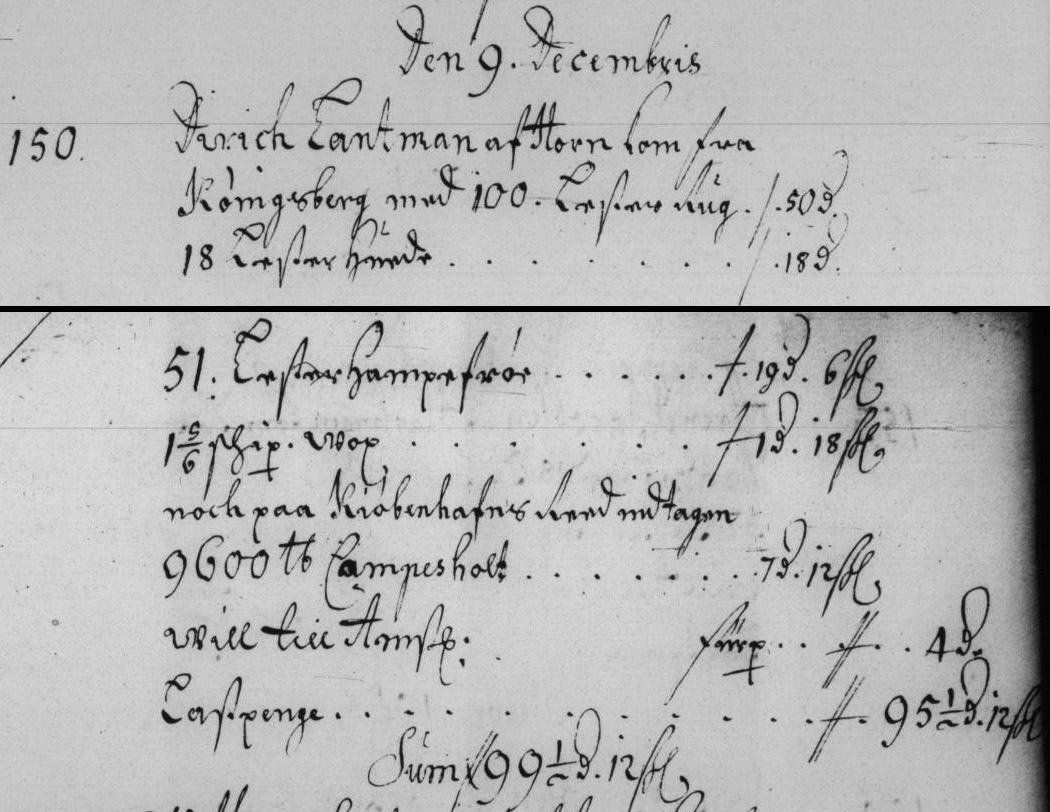 Den 9. Decembris
150. Dirich Lantman af Horn kom fra
Kønigsberg med 100. Lester Rüg . 50 d.
18 Lester hüede . . . . . . 18 d.
51. Lester hampefrøe . . . . . . 19 d. 6 sk
1 5/6 schip. wox . . . . . . 1 d. 18 sk
noch paa Kiøbenhafns Reed indtagen
9600 tb Campesholt . . . . . . 7 d. 12 sk
will till Amst. fürp . . . 4 d.
Lastpenge . . . . . . . . . 95 ½ d. 12 sk
Sum 99 ½ d. 12 sk